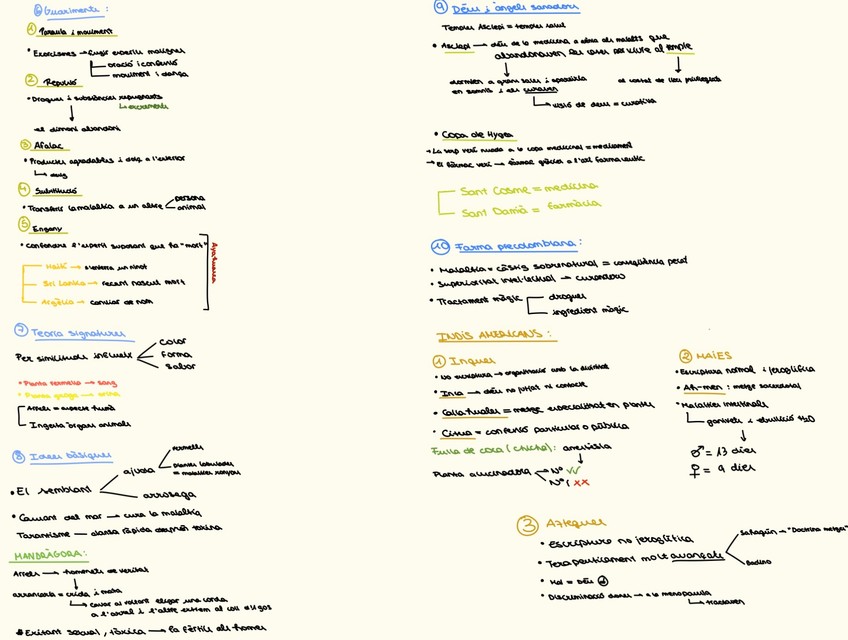 ⑥ Guariments:
① Paraula i moviment
• Exorcismes → fugir esperit malignes
oració i confessió
moviment i dansa
② Repulsió
• Drogues i substàncies repugnants
↳ excrements
el dimoni abandoni
③ Afalac
• Productes agradables i dolç a l'exterior
④ Substitució
• Transferir la malaltia a un altre
persona
animal
⑤ Engany
• Confondre l'esperit suposant que ha "mort"
Haití → s'enterra un ninot
Sri Lanka → recent nascut mort
Argèlia → canviar de nom
⑦ Teoria signatures
Per similituds influeix
color
forma
sabor
• Planta vermella → sang
• Planta groga → orina
Ingesta òrgans animals
⑧ Idees bàsiques
• El semblant
ajuda
vermells
plantes lobulades = malalties
arrossega
• Causant del mal → cura la malaltia
Tarantisme — dansa ràpida
MANDRÀGORA:
Arrels → homenets de veritat
arrancarla = crida i mata
↳ Cavar al voltant, lligar una corda
a l'arrel i l'altre extrem al coll d'1 gos
• Excitant sexual, tòxica → fa fèrtils als homes
⑨ Déus i àngels sanadors
Temples Asclepi = temples salut
• Asclepi → déu de la medicina a qui els malalts que
abandonaven les coses per viure al temple
dormien a grans sales i apareixia
en somnis i els curava
↳ visió de déu = curativa
al costat de llocs privilegiats
• Copa de Hygea
→ La serp verí nuada a la copa medicinal = medicament
→ El fàrmac verí → fàrmac gràcies a l'art farmacèutic
Sant Cosme = medicina
Sant Damià = farmàcia
⑩ Farma precolombiana:
• Malaltia = càstig sobrenatural = conseqüència pecat
• Superioritat intel·lectual → curanderos
• Tractament màgic
drogues
ingredient màgic
INDIS AMERICANS:
① Inques
• No escriptura → organització amb la divinitat
• Collatuales = metge especialitzat en plantes
• Cisma = confessió particular o pública
Fulla de coca (chicha): anestèsia
Planta al·lucinògena
② MAIES
• Escriptura normal i jeroglífica
• Ah-men: metge sacerdotal
• Malalties intestinals
♂ = 13 dies
♀ = 9 dies
③ Azteques
• Escriptura no jeroglífica
• Terapèuticament molt avançats
Sahagún → "Doctrina metges"
Badino
• Discriminació dones → a la menopausa
↳ tractaven